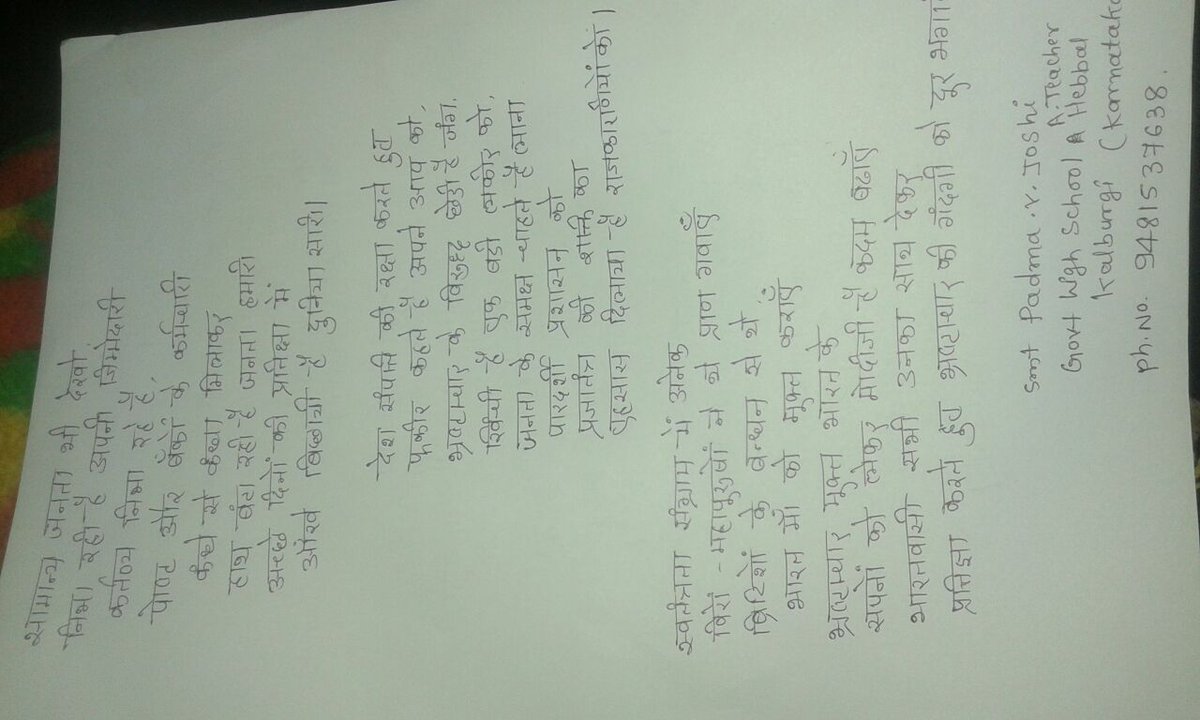 सामान्य जनता भी देखो.
निभा रही है अपनी जिम्मेदारी
कर्तव्य निभा रहे है,
पोष्ट और बँकों के कर्मचारी
कंधे से कंधा मिलाकर
हाथ बंटा रही है जनता हमारी
अच्छे दिनों की प्रतिक्षा में
आँख बिछायी है दुनिया सारी।
देश संपत्ति की रक्षा करते हुए
फकीर कहते है अपने आप को,
भ्रष्टाचार के विरुद्ध छेडी है जंग.
खिंची है एक बडी लकीर को,
जनता के समक्ष चाहते है लाना
पारदर्शी प्रशासन को
प्रजातंत्र की शक्ति का
एहसास दिलाया है राजकारणियों को।
स्वतंत्रता संग्राम में अनेक
विरो - महापुरुषों ने थे प्राण गवाएँ
ब्रिटिशों के बन्धन से थे
भारत माँ को मुक्त कराएँ
भ्रष्टाचार मुक्त भारत के
सपनों को लेकर मोदीजी है कदम बढाएँ
भारतवासी सभी उनका साथ देकर
प्रतिज्ञा करते हुए भ्रष्टाचार की गंदगी को दूर भगा
Smt Padma.r.Joshi
A.Teacher
Govt High School Hebbal
Kalburgi (Karnataka
Ph.No. 9481537638.